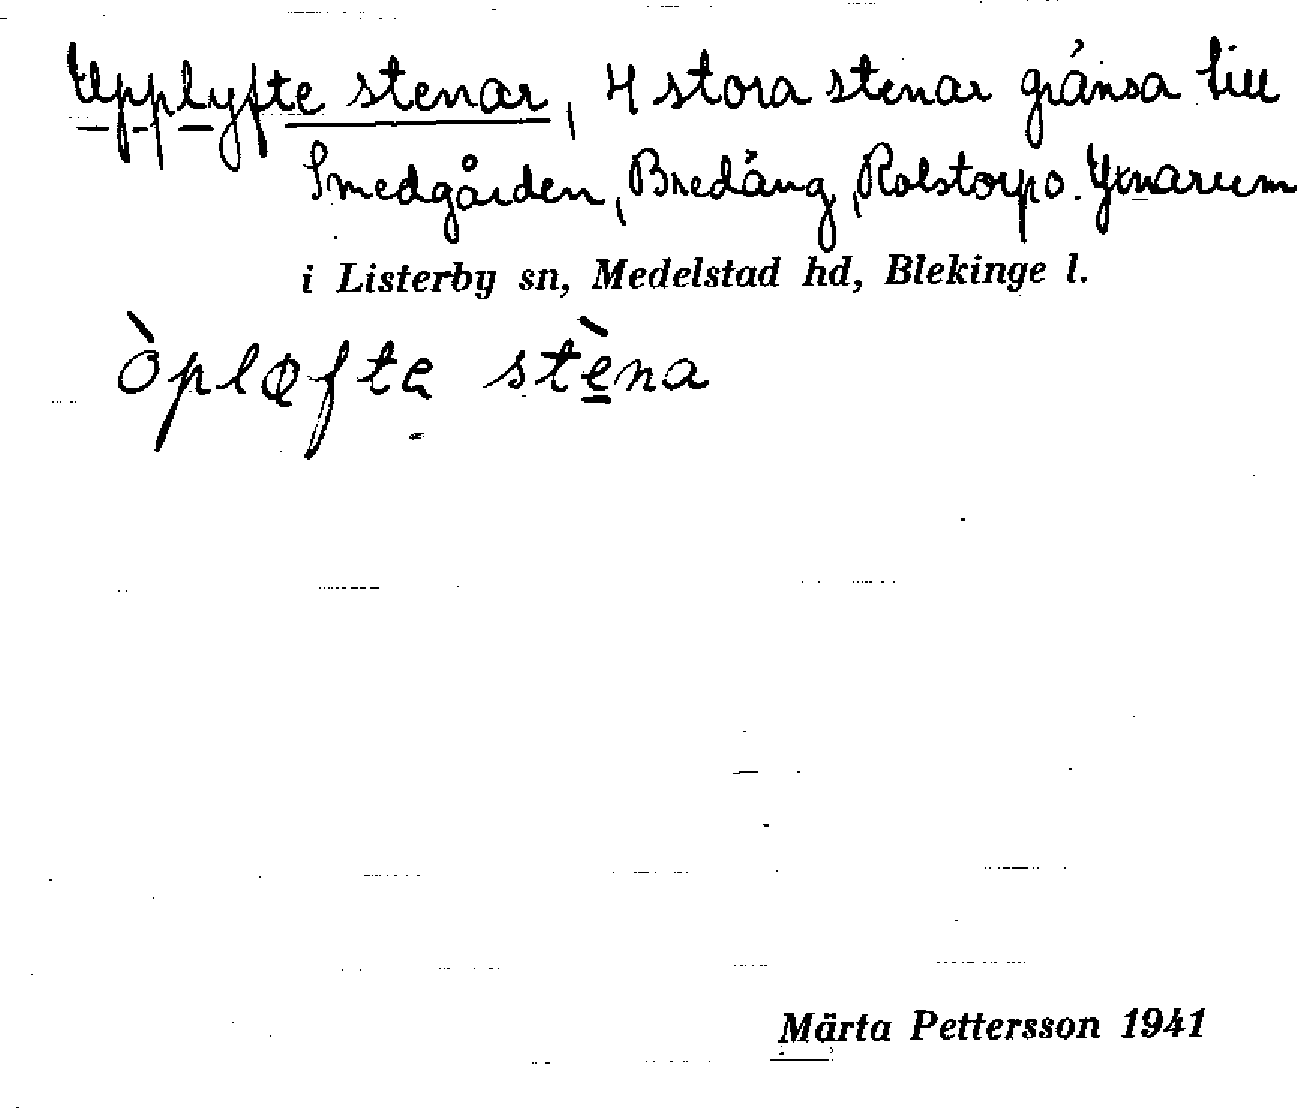 Upplyfte stenar, 4 stora stenar gränsa till
Smedgården, Bredäng, Rolstorp o. Yxnarum
i Listerby sn, Medelstad hd, Blekinge l.
òpløfte stèna
Märta Pettersson 1941